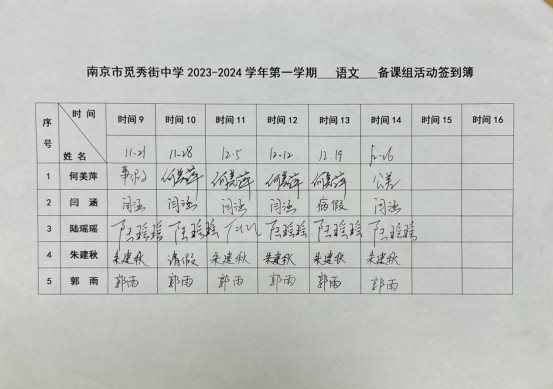 南京市觅秀街中学2023-2024学年第一学期 语文 备课组活动签到簿
序号 时间 姓名 时间9 时间10 时间11 时间12 时间13 时间14 时间15 时间16
11-21 11-28 12-5 12-12 12.19 12-26
1 何美萍 事假 何美萍 何美萍 何美萍 何美萍 公差
2 闫涵 闫涵 闫涵 闫涵 闫涵 病假 闫涵
3 陆瑶瑶 陆瑶瑶 陆瑶瑶 陆瑶瑶 陆瑶瑶 陆瑶瑶
4 朱建秋 朱建秋 请假 朱建秋 朱建秋 朱建秋 朱建秋
5 郭雨 郭雨 郭雨 郭雨 郭雨 郭雨 郭雨